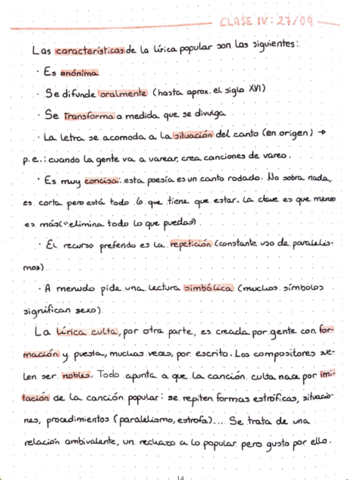 CLASE IV: 27/09
Las características de la lírica popular son las siguientes:
· Es anónima
· Se difunde oralmente (hasta aprox. el siglo XVI)
· Se transforma a medida que se divulga
· La letra se acomoda a la situación del canto (en origen) →
p.e.: cuando la gente va a varear, crea canciones de vareo.
· Es muy concisa: esta poesía es un canto rodado. No sobra nada,
es corta pero está todo lo que tiene que estar. La clave es que menos
es más (elimina todo lo que puedas)
· El recurso preferido es la repetición (constante uso de paralelis-
mos)
· A menudo pide una lectura simbólica (muchos símbolos
significan sexo)
La lírica culta, por otra parte, es creada por gente con for-
mación y puesta, muchas veces, por escrito. Los compositores sue-
len ser nobles. Todo apunta a que la canción culta nace por imi-
tación de la canción popular: se repiten formas estróficas, situacio-
nes, procedimientos (paralelismo, estrofa)... Se trata de una
relación ambivalente, un rechazo a lo popular pero gusto por ello.
14